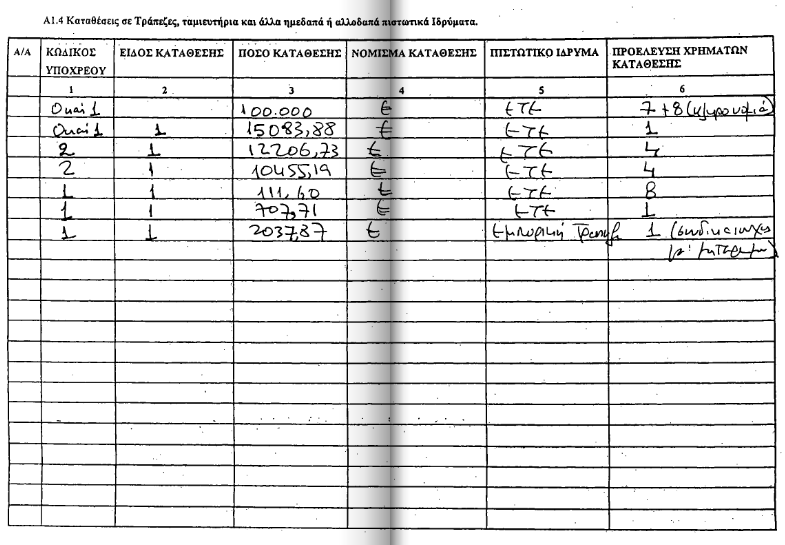 Α1.4 Καταθέσεις σε Τράπεζες, ταμιευτήρια και άλλα ημεδαπά ή αλλοδαπά πιστωτικά Ιδρύματα.
Α/Α ΚΩΔΙΚΟΣ ΥΠΟΧΡΕΟΥ ΕΙΔΟΣ ΚΑΤΑΘΕΣΗΣ ΠΟΣΟ ΚΑΤΑΘΕΣΗΣ ΝΟΜΙΣΜΑ ΚΑΤΑΘΕΣΗΣ ΠΙΣΤΩΤΙΚΟ ΙΔΡΥΜΑ ΠΡΟΕΛΕΥΣΗ ΧΡΗΜΑΤΩΝ ΚΑΤΑΘΕΣΗΣ
1 2 3 4 5 6
0 και 1 100.000 € ΕΤΕ 7 + 8 (κληρονομιά)
0 και 1 1 15083,88 € ΕΤΕ 1
2 1 12206,73 € ΕΤΕ 4
2 1 10455,19 € ΕΤΕ 4
1 1 111,60 € ΕΤΕ 8
1 1 707,71 € ΕΤΕ 1
1 1 2037,87 € Εμπορική Τραπεζ 1 (συνδικαιούχος
με μητέρα μου)